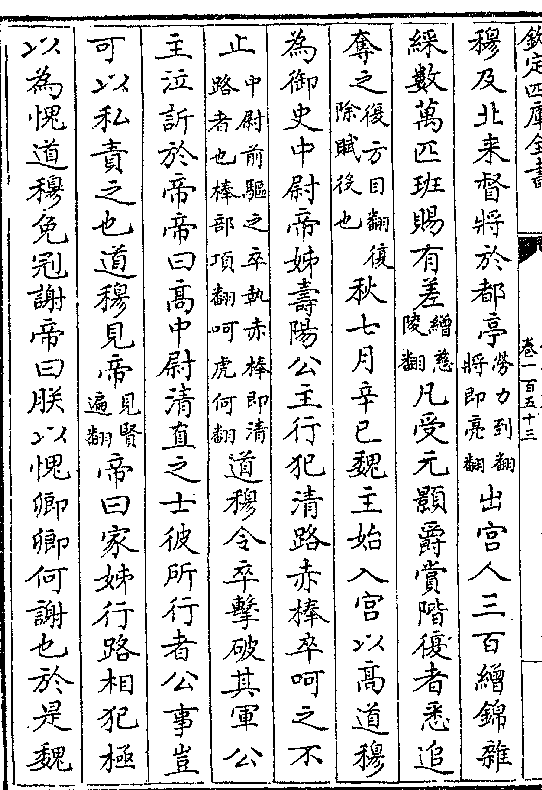 欽定四庫全書
卷一百五十三
穆及北来督將於都亭勞力到翻將即亮翻出宮人三百繒錦雜
綵數萬匹班賜有差繒慈陵翻凡受元顥爵賞階復者悉追
奪之復方目翻復除賦役也秋七月辛巳魏主始入宮以髙道穆
為御史中尉帝姊壽陽公主行犯清路赤棒卒呵之不
止中尉前驅之卒執赤棒即清路者也棒部項翻呵虎何翻道穆令卒擊破其軍公
主泣訴於帝帝曰髙中尉清直之士彼所行者公事豈
可以私責之也道穆見帝見賢遍翻帝曰家姊行路相犯極
以為愧道穆免冠謝帝曰朕以愧卿卿何謝也於是魏